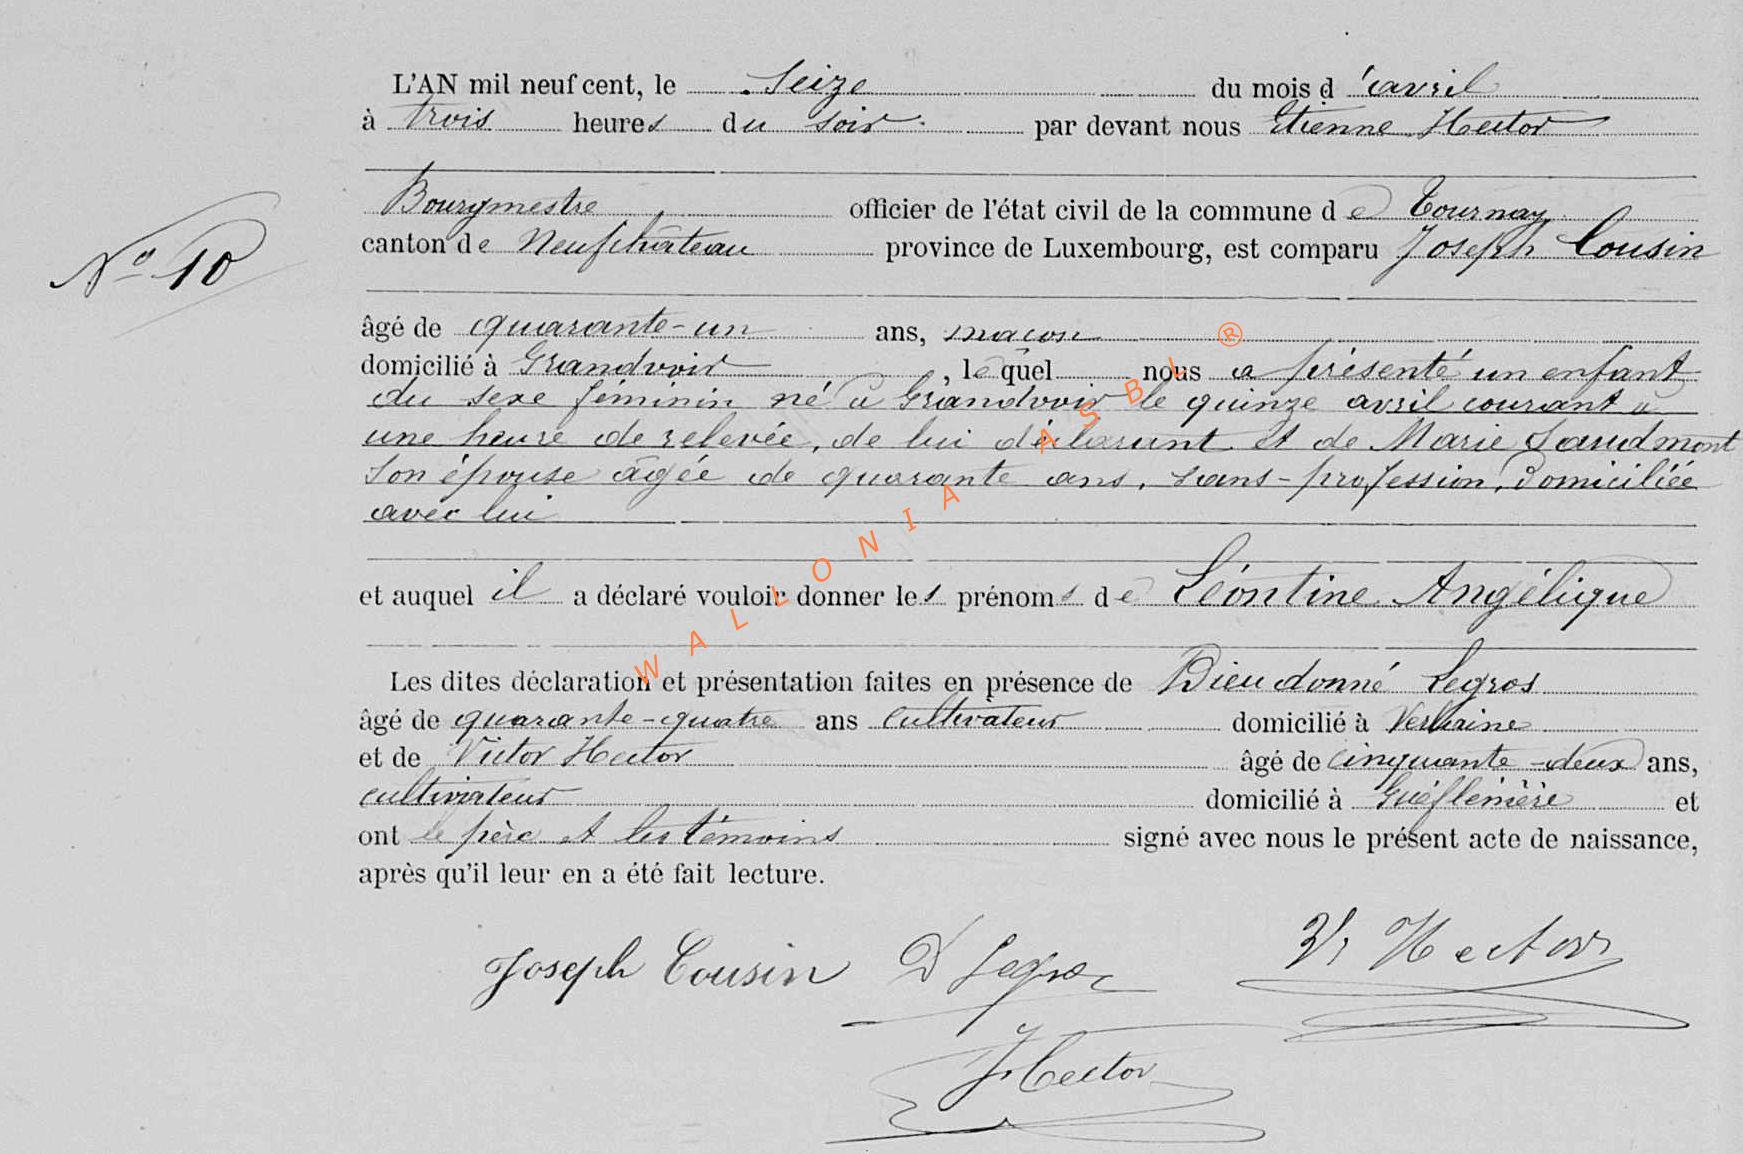 L'AN mil neuf cent, le seize du mois d'avril
à trois heures du soir par devant nous Etienne Hector
Bourgmestre officier de l'état civil de la commune de Tournay
N° 10
canton de Neufchâteau province de Luxembourg, est comparu Joseph Cousin
âgé de quarante-un ans, maçon
domicilié à Grandvoir, lequel nous a présenté un enfant
du sexe féminin né à Grandvoir le quinze avril courant à
une heure de relevée, de lui déclarant et de Marie
son épouse âgée de quarante ans, sans-profession, domiciliée
avec lui
et auquel il a déclaré vouloir donner les prénoms de Léontine Angélique
Les dites déclaration et présentation faites en présence de Dieudonné Legros
âgé de quarante-quatre ans cultivateur domicilié à Verlaine
et de Victor Hector âgé de cinquante-deux ans,
cultivateur domicilié à et
ont le père et les témoins signé avec nous le présent acte de naissance,
après qu'il leur en a été fait lecture.
Joseph Cousin D Legros V. Hector
Hector
WALLONIA ASBL ®